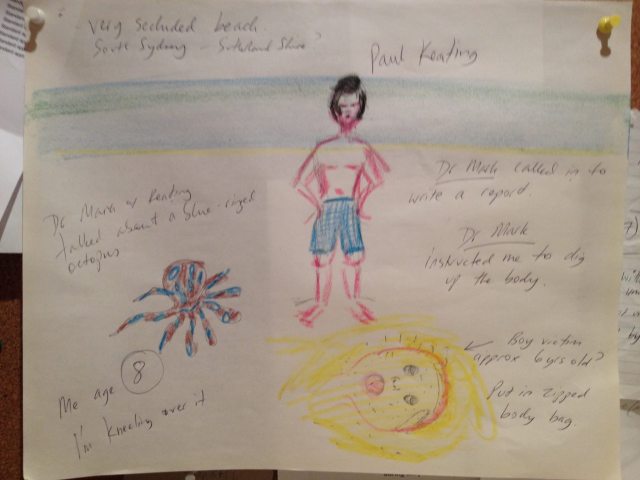 - Very secluded beach.
South Sydney - Sutherland Shire?
Paul Keating
Dr Mark called in to
write a report.
Dr Mark & Keating
talked about a blue-ringed
octopus
Dr Mark
instructed me to dig
up the body.
Boy victim
approx 6yrs old?
Put in zipped
body bag.
Me age 8
I'm kneeling over it